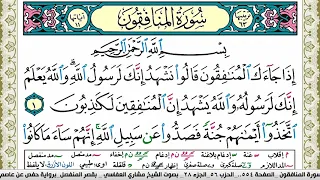 سورة المنافقون
بِسْمِ ٱللَّهِ ٱلرَّحْمَٰنِ ٱلرَّحِيمِ
إِذَا جَآءَكَ ٱلْمُنَٰفِقُونَ قَالُوا۟ نَشْهَدُ إِنَّكَ لَرَسُولُ ٱللَّهِ وَٱللَّهُ يَعْلَمُ
إِنَّكَ لَرَسُولُهُۥ وَٱللَّهُ يَشْهَدُ إِنَّ ٱلْمُنَٰفِقِينَ لَكَٰذِبُونَ ١
ٱتَّخَذُوٓا۟ أَيْمَٰنَهُمْ جُنَّةً فَصَدُّوا۟ عَن سَبِيلِ ٱللَّهِ إِنَّهُمْ سَآءَ مَا كَانُوا۟
سورة المنافقون الصفحة ٥٥٤ من ٥٦١ الجزء ٢٨ بصوت الشيخ مشاري العفاسي بقصر المنفصل برواية حفص عن عاصم